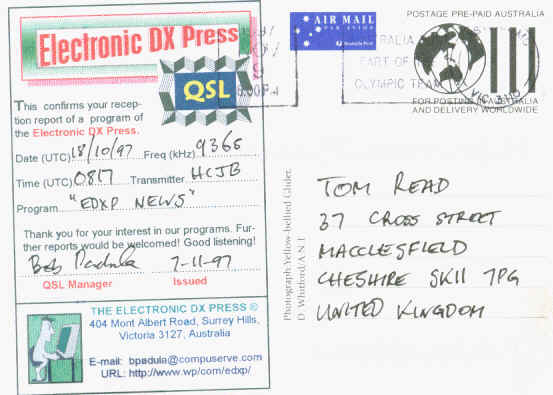 Electronic DX Press
QSL
This confirms your recep-
tion report of a program of
the Electronic DX Press.
Date (UTC) 18/10/97 Freq (kHz) 9365
Time (UTC) 0817 Transmitter HCJB
Program "EDXP NEWS"
Thank you for your interest in our programs. Fur-
ther reports would be welcomed! Good listening!
Bob Padula 7-11-97
QSL Manager Issued
THE ELECTRONIC DX PRESS ©
404 Mont Albert Road, Surrey Hills,
Victoria 3127, Australia
E-mail: bpadula@compuserve.com
URL: http://www.wp/com/edxp/
AIR MAIL
PAR AVION
Australia Post
PART OF
OLYMPIC TEAM
POSTAGE PRE-PAID AUSTRALIA
FOR POSTING IN AUSTRALIA
AND DELIVERY WORLDWIDE
Photograph:Yellow-bellied Glider.
D. Whitford/A.N.T.
TOM READ
37 CROSS STREET
MACCLESFIELD
CHESHIRE SK11 7PG
UNITED KINGDOM